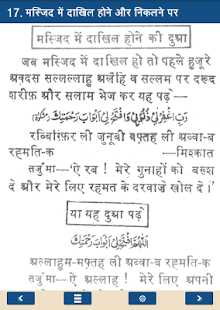 17. मस्जिद में दाखिल होने और निकलने पर
मस्जिद में दाखिल होने की दुआ
जब मस्जिद में दाखिल हो तो पहले हुज़ूरे
अक़दस सल्लल्लाहु अलैहि व सल्लम पर दरूद
शरीफ़ और सलाम भेज कर यह पढ़े —
رَبِّ اغْفِرْ لِيْ ذُنُوْبِيْ وَافْتَحْ لِيْ اَبْوَابَ رَحْمَتِكَ (مشکوٰۃ)
रब्बिग़्फ़िर ली ज़ुनूबी वफ़्तह ली अब्वा-ब
रह्मति-क —मिश्कात
तर्जुमा—'ऐ रब ! मेरे गुनाहों को बख़्श
दे और मेरे लिए रहमत के दरवाज़े खोल दे।'
या यह दुआ पढ़े
اَللّٰهُمَّ افْتَحْ لِيْ اَبْوَابَ رَحْمَتِكَ
अल्लाहुम-मफ़्तह ली अब्वा-ब रह्मति-क
तर्जुमा—ऐ अल्लाह ! मेरे लिए अपनी